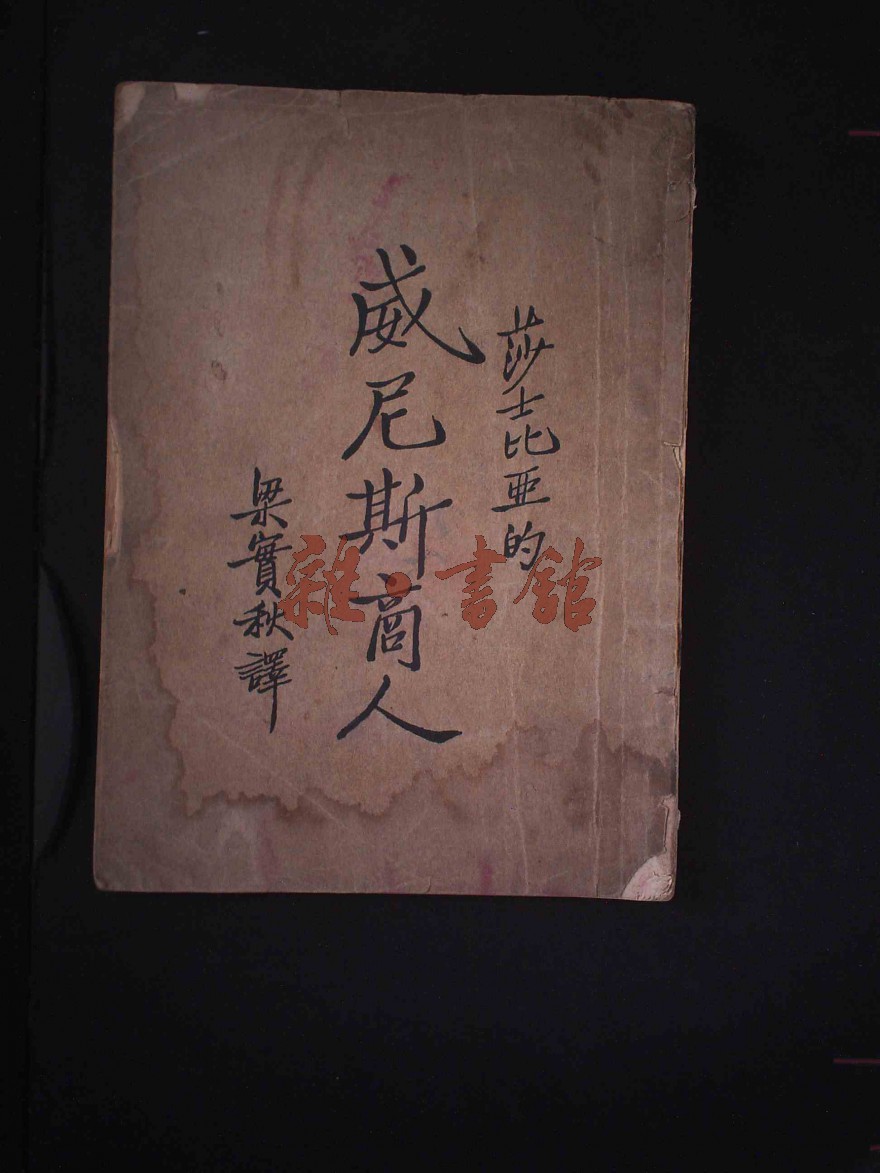 莎士比亚的
威尼斯商人
梁實秋譯
雜·書館